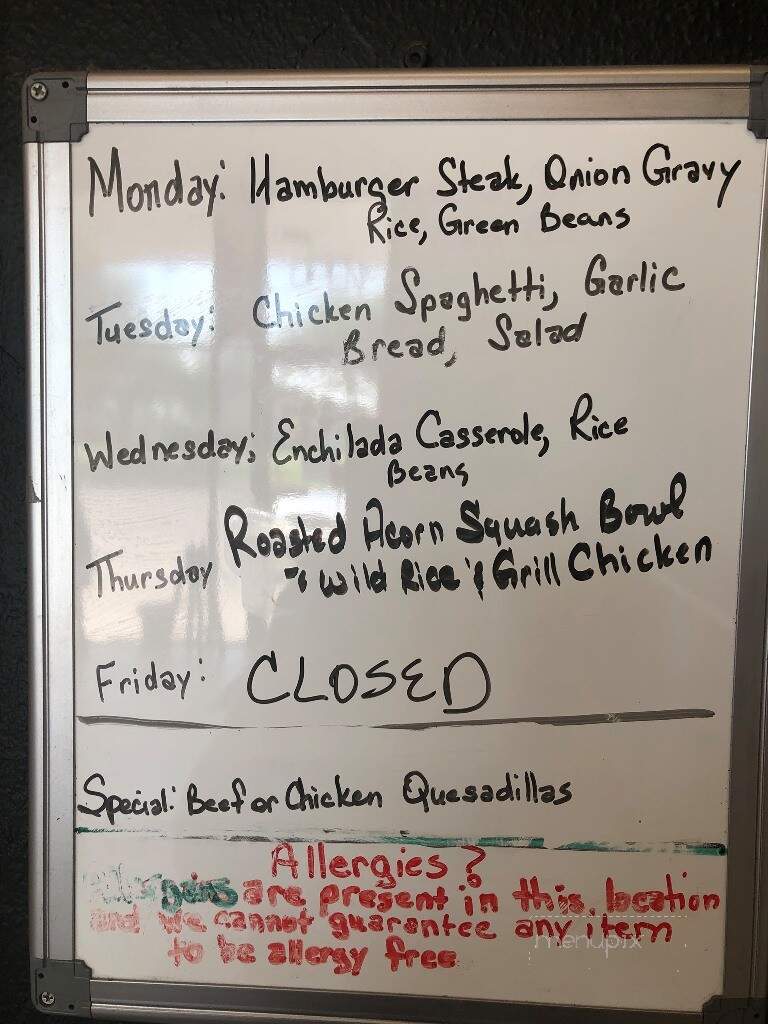 Monday: Hamburger Steak, Onion Gravy
Rice, Green Beans
Tuesday: Chicken Spaghetti, Garlic
Bread, Salad
Wednesday; Enchilada Casserole, Rice
Beans
Roasted Acorn Squash Bowl
Thursday
Wild Rice & Grill Chicken
Friday: CLOSED
Special: Beef or Chicken Quesadillas
Allergies?
are present in this location
and we cannot guarantee any item
to be allergy free
menupix